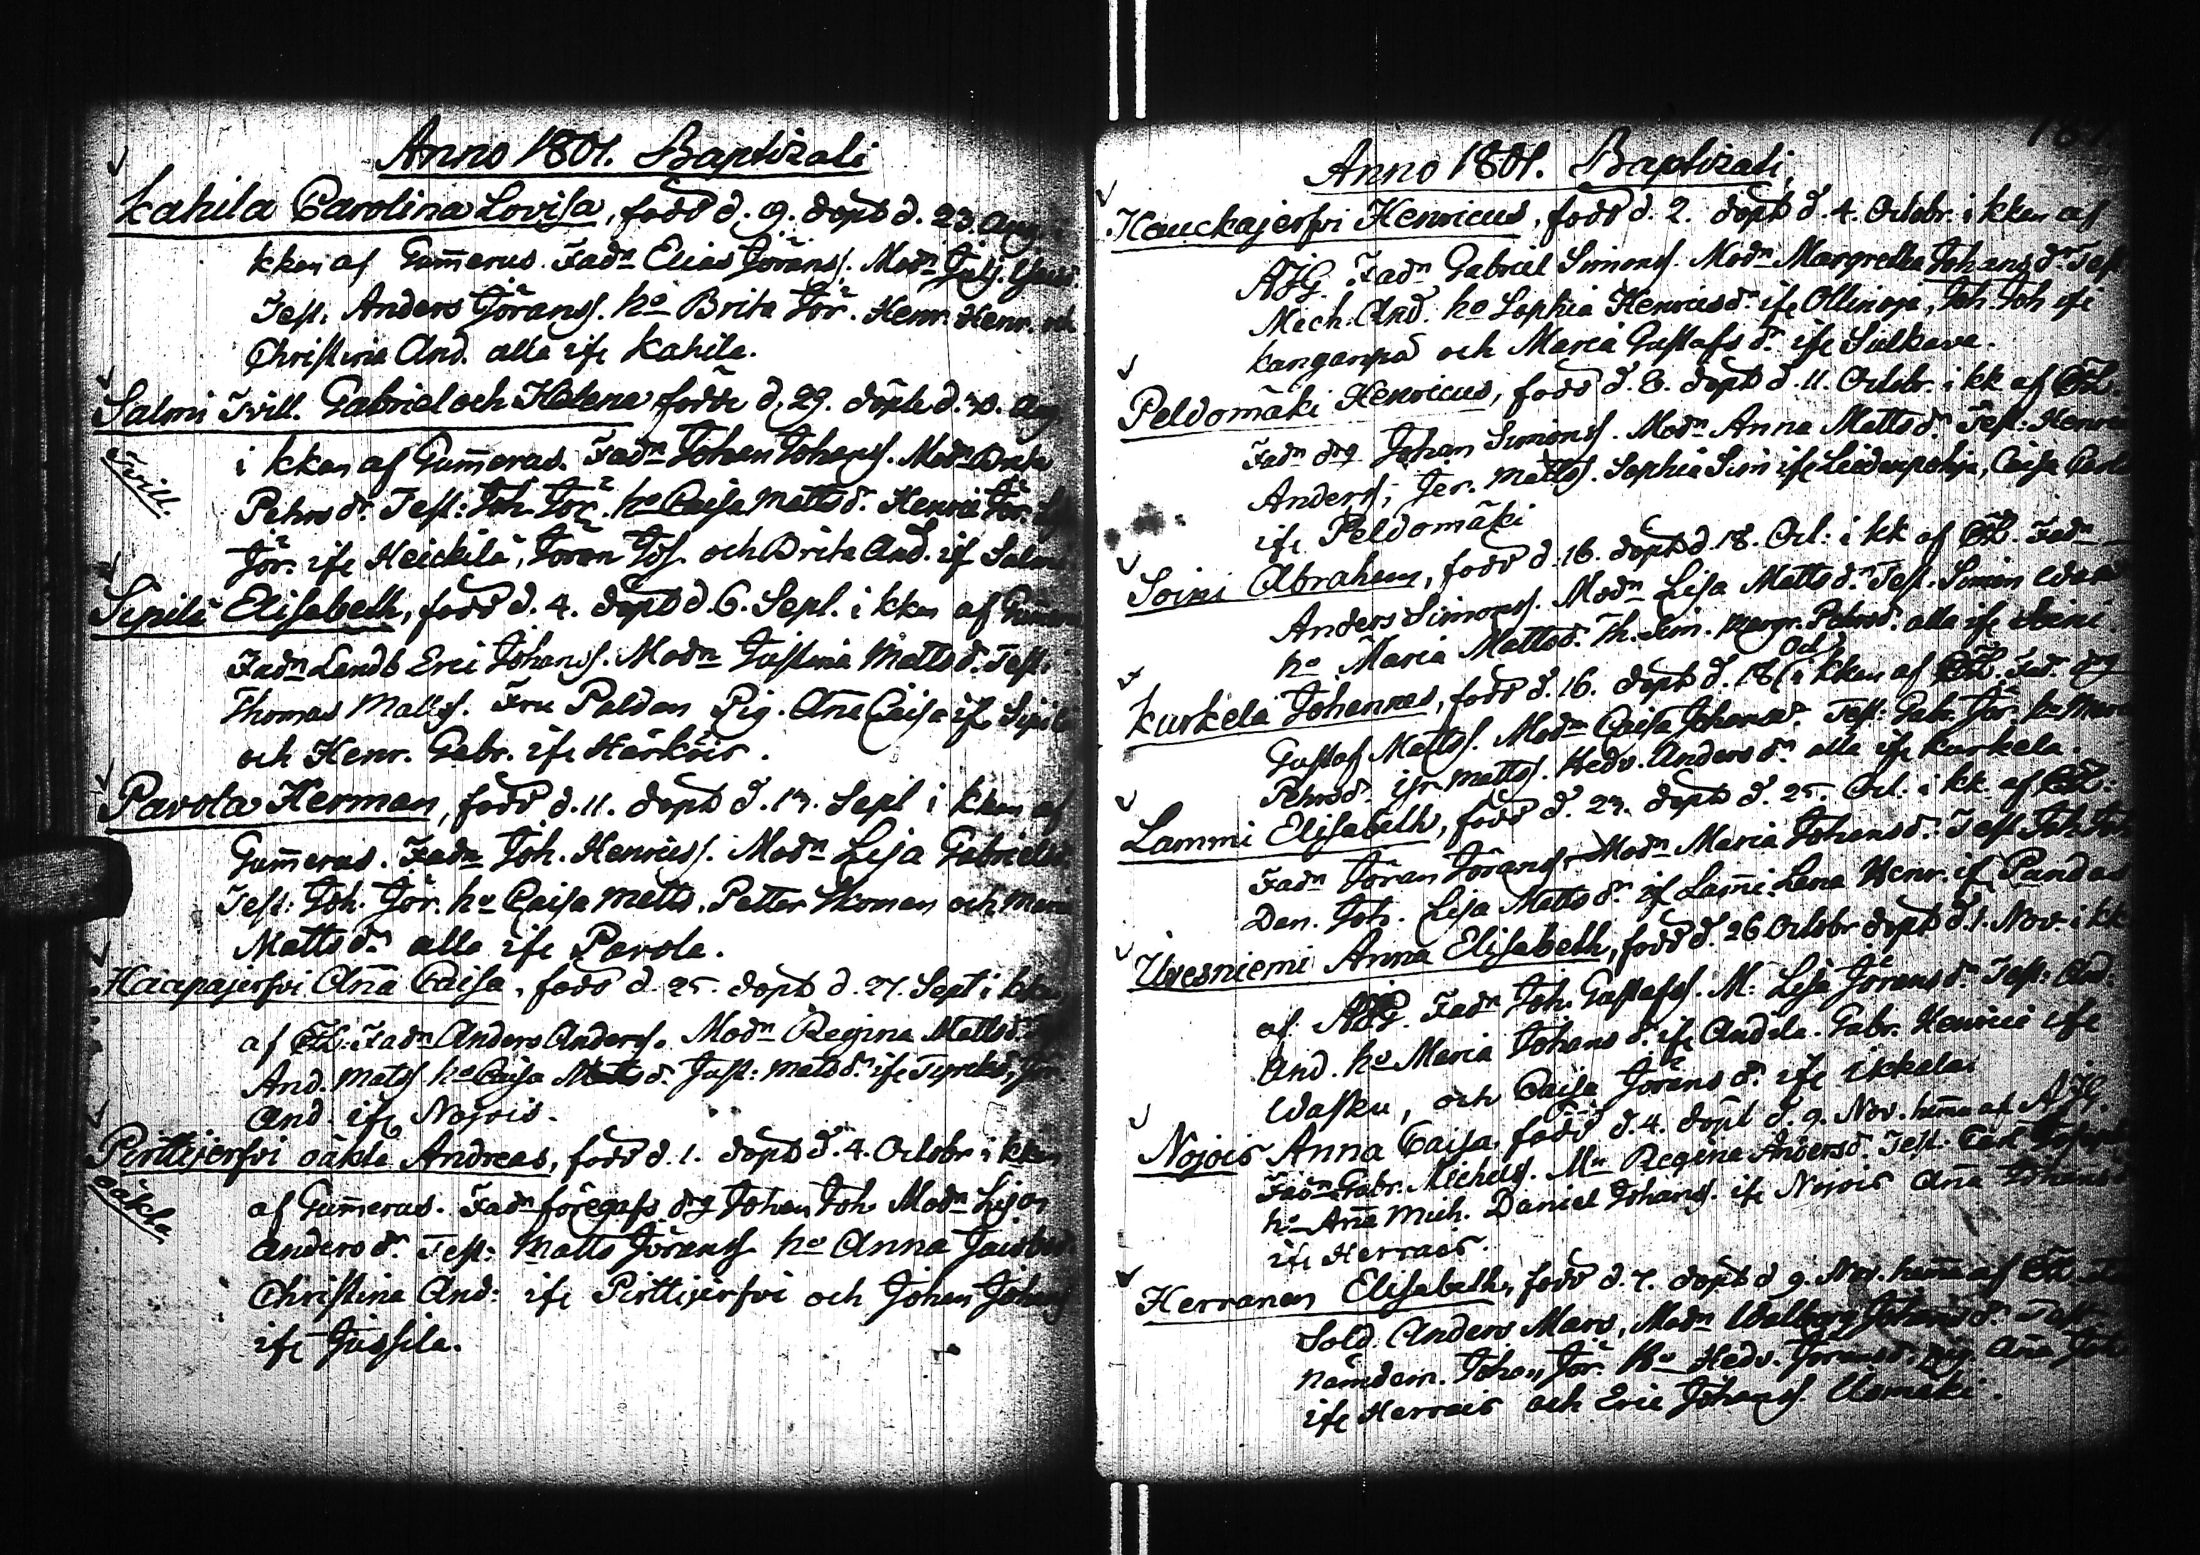 Anno 1801. Baptizati
Kahila Carolina Lovisa, född d. 9. döpt d. 23. Aug. i
kkan af Gum̄erus. Fadn Elias Jöranss. Modn
Test. Anders Jöranss. ho Brita Jör. Henr. Henr. och
Christina And. alla ifr Kahila.
Salmi Tvill. Gabriel och Helena födde d. 29. döpte d. 30. Aug
i kkan af Gum̄erus. Fadn Johan Johanss. Modn Brita
Tvill.
Pehrsdr. Test: Joh. Jör. ho Caisa Mattsdr. Henric Jör.
Jör. ifr Heickilä, Jöran Joh. och Brita And. ifr Salmi
Sipilä Elisabeth, född d. 4. döpt d. 6. Sept. i kkan af Gum̄erus
Fadn Landb Eric Johanss. Modn Justina Mattsdr. Test:
Thomas Matts. Fru Paldan Pig. An̄a Caisa ifr Sipilä
och Henr. Gabr. ifr Härköis.
Pavola Herman, född d. 11. döpt d. 13. Sept i kkan af
Gum̄erus. Fadn Joh. Henricss. Modn Lisa Gabrielsdr.
Test: Joh. Jör. ho Caisa Matts. Petter Ekoman och Maria
Mattsdr alla ifr Pavola.
Haapajerfvi An̄a Caisa, född d. 25. döpt d. 27. Sept i kkan
af Fadn Anders Anderss. Modn Regina Mattsdr.
And. Matss ho Caisa Mattsdr. Just: Matsdr. ifr Jör.
And. ifr Nojois.
Pirttijerfvi oäkta Andreas, född d. 1. döpt d. 4. Octobr. i kkan
oäkta
af Gum̄erus. Fadn föregafs dg Johan Joh. Modn Lisa
Andersdr. Test: Matts Jöranss ho Anna Jacobsd.
Christina And: ifr Pirttijerfvi och Johan Johanss
ifr Jussila.
Anno 1801. Baptizati,
Hauckajerfvi Henricus, född d. 2. döpt d. 4. Octobr. i kkan af
AJG. Fadn Gabriel Simonss. Modn Margretha Johansdr. Test
Mich. And. ho Sophia Henricsdr. ifr Ollinoja, Joh. Joh ifr
Kanganpä och Maria Gustafsdr. ifr Sulkava.
Peldomäki Henricus, född d. 8. döpt d. 11. Octobr. i kk af
Fadn dg Johan Simonss. Modn Anna Mattsdr. Test: Henric
Anderss, Jer. Mattss. Sophia Sim ifr Liedenpohja, Caisa
ifr Peldomäki
Soini Abraham, född d. 16. döpt d. 18. Oct: i kk af Fadn
Anders Simonss. Modn Lisa Mattsdr. Test. Simon
ho Maria Mattsdr. Th. Sim. Margr. Pehrsdr. alla ifr Soini.
Kurkela Johannes, född d. 16. döpt d. 18 Oct i kkan af Fad. dg
Gustaf Mattss. Modn Caisa Johansdr. Test: Gabr. Jör. ho Maria
Pehrsdr. Isr. Mattss. Hedv. Andersdr. alla ifr Kurkela.
Lammi Elisabeth, född d. 23. döpt d. 25. Oct. i kk. af
Fadn Jöran Jöranss. Modn Maria Johansdr. Test Joh.
Dan. Joh. Lisa Mattsdr. ifr Lam̄i Lena Henr. ifr Pandas
Uvesniemi Anna Elisabeth, född d. 26 Octobr döpt d. 1. Nov. i kk
af AJG. Fadn Joh. Gustafss. M. Lisa Jöransdr. Test: And.
And. ho Maria Johansdr. ifr Andila. Gabr. Henrici ifr
Wasku, och Caisa Jöransdr. ifr Ikkelax
Nojois Anna Caisa, född d. 4. döpt d. 9. Nov. hem̄a af AJG.
Fadn Gabr. Michelss. Mn Regina Andersdr. Test: Carl
ho An̄a Mich. Daniel Johanss. ifr Nojois An̄a Johansd
ifr Herrais.
Herranen Elisabeth, född d. 7. döpt d 9. Nov. hem̄a af
Sold. Anders Mars, Modn Walborg Johansdr. Test.
Nämdem. Johan Jör. Ho Hedv. Jöransd. pig An̄a Joh.
ifr Herrais och Eric Johanss Uomäki.